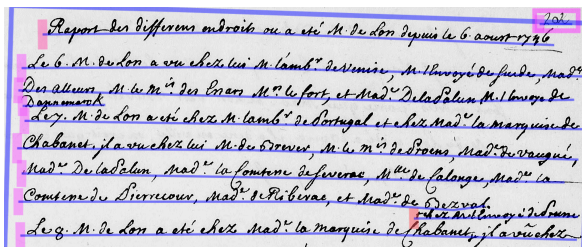 202
Raport des differens endroits ou a eté M. de Lon depuis le 6. aoust 1746
Le 6. M. de Lon a vu chez lui M. l'amb.r de Venise, M. l'Envoyé de Suede, Mad.e
Des alleurs, M. le m.is des Enars M.r le fort, et Mad.e De la Palun M. l'Envoye de
Dannemark
Le 7. M. de Lon a eté chez M. l'amb.r de Portugal et chez Mad.e la marquise de
Chabanet, il a vu chez lui M. de Brever, M. le m.is de Proens, Mad.e de vaugué,
Mad.e De la Palun, Mad.e la Comtesse de Severac, M.lle de Calonge, Mad.e la
Comtesse de Pierrecour, Mad.e de Riberac, et Mad.e de Bezval.
chez M. l'Envoyé de Prusse
Le 8. M. de Lon a eté chez Mad.e la marquise de Chabanet, il a vû chez